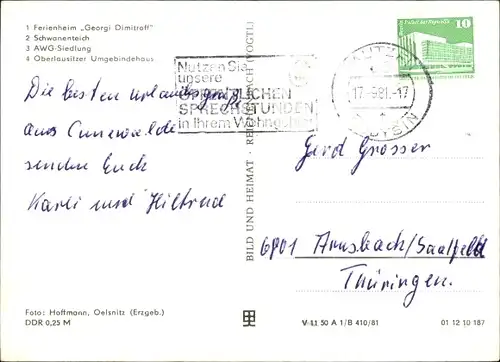 1 Ferienheim „Georgi Dimitroff"
2 Schwanenteich
3 AWG-Siedlung
4 Oberlausitzer Umgebindehaus
Nutzen Sie
unsere
ÄRZTLICHEN
SPRECHSTUNDEN
in Ihrem Wohngebiet
BAUTZEN
17.-9.81.-17
BUDYŠIN
10
Die besten Urlaubsgrüße
aus Cunewalde
senden Euch
Karli und Hiltrud
BILD UND HEIMAT · REICHENBACH (VOGTL)
Gerd Grosser
6801 Arnsbach/Saalfeld
Thüringen.
Foto: Hoffmann, Oelsnitz (Erzgeb.)
DDR 0,25 M
V 11 50 A 1/B 410/81
01 12 10 187